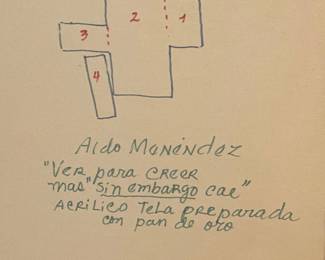 2
1
3
4
Aldo Menéndez
"Ver para CREER
mas" sin embargo cae"
ACRILICO TELA PREPARADA
con pan de oro